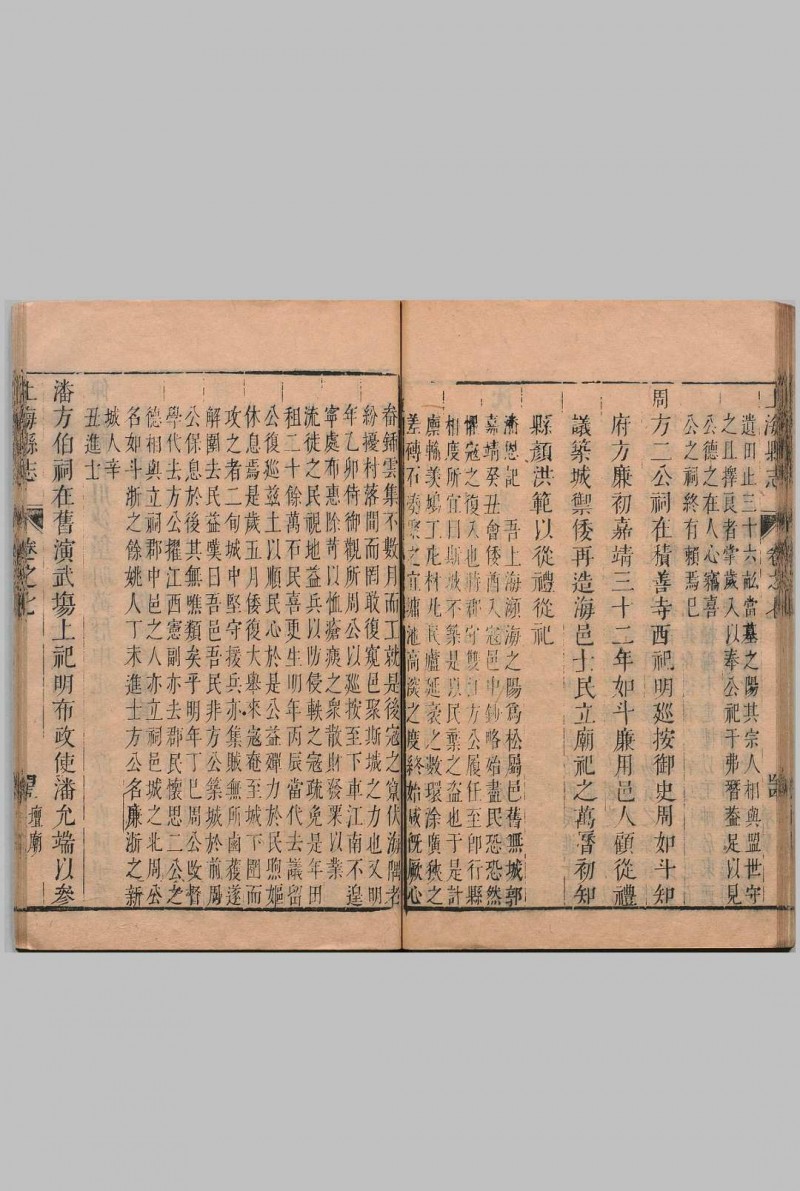 上海縣志
卷之七
遺田止三十六畝當墓之陽其宗人相與盟世守
之且擇良者掌歲入以奉公祀于弗替益足以見
公德之在人心竊喜
公之祠終有賴焉已
周方二公祠在積善寺西祀明廵按御史周如斗知
府方廉初嘉靖三十二年如斗廉用邑人顧從禮
議築城禦倭再造海邑士民立廟祀之萬曆初知
縣顏洪範以從禮從祀
潘恩記 吾上海瀕海之陽爲松屬邑舊無城郭
嘉靖癸丑會倭酋入寇邑中鈔略殆盡民恐恐然
懼寇之復入也時郡守雙江方公履任至卽行縣
相度所宜曰斯城不築是以民棄之盗也于是計
廣輪羙鳩工庀材民廬延袤之數環涂廣狹之
差磚石秀聚之宜塘池高深之度終始咸旣厥心
畚鍤雲集不數月而工就是後寇之窺伏海隅者
紛擾村落間而罔敢復窺邑聚斯城之力也又明
年乙卯侍御觀所周公以廵按至下車江南不遑
寧處布惠除苛以恤瘡痍之衆散財發粟以業
流徒之民視地益兵以防侵軼之寇疏免是年田
租二十餘萬石民喜更生明年丙辰當代去議留
公復廵兹土以順民心於是公益殫力於民煦嫗
休息焉是歲五月倭復大舉來寇奄至城下圍而
攻之者二旬城中堅守援兵亦集賊無所鹵獲遂
解圍去民益嘆曰吾邑吾民非方公築城於前周
公保息於後其無噍類矣乎明年丁巳周公改督
學代去方公擢江西憲副亦去郡民懷思二公之
德相與立祠郡中邑之人亦立祠邑城之北周公
名如斗浙之餘姚人丁未進士方公名廉浙之新
城人辛
丑進士
潘方伯祠在舊演武塲上祀明布政使潘允端以參
上海縣志
卷之七
壇廟